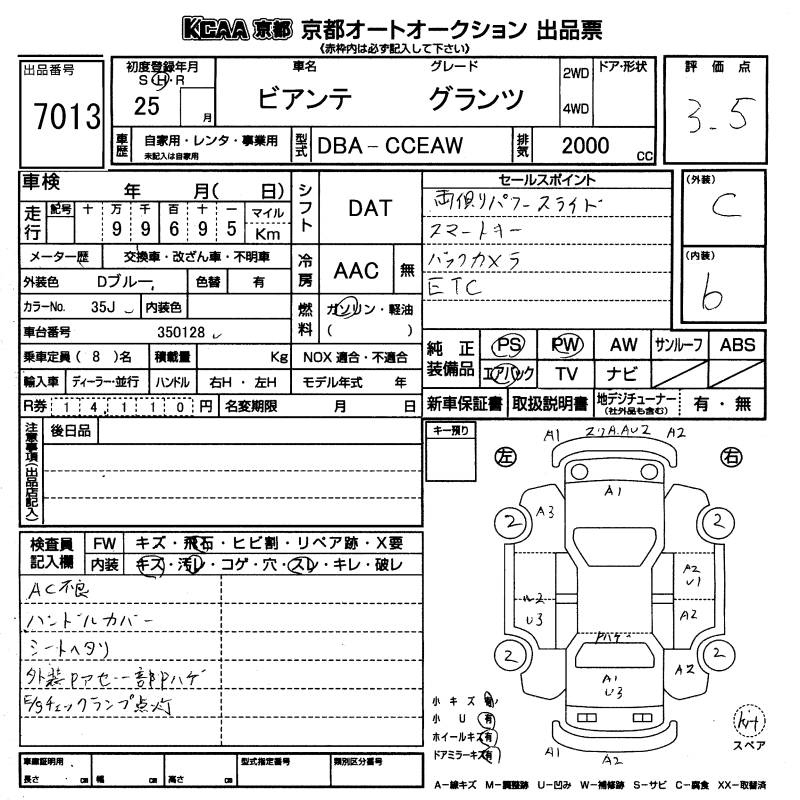 KCAA 京都 京都オートオークション 出品票
《赤枠内は必ず記入して下さい》
出品番号
7013
初度登録年月
S H R
25 月
車名
ビアンテ
グレード
グランツ
2WD
4WD
ドア・形状
評価点
3.5
車歴
自家用・レンタ・事業用
未記入は自家用
型式
DBA-CCEAW
排気
2000 cc
車検 年 月( 日)
走行
記号 十 万 千 百 十 一 マイル
9 9 6 9 5 Km
メーター歴 交換車・改ざん車・不明車
外装色 Dブルー 色替 有
カラーNo. 35J 内装色
車台番号 350128
乗車定員 ( 8 )名 積載量 Kg
輸入車 ディーラー・並行 ハンドル 右H・左H
R券 14,110 円 名変期限 月 日
シフト
DAT
冷房
AAC 無
燃料
ガソリン・軽油
( )
NOX 適合・不適合
モデル年式 年
セールスポイント
両側パワースライド
スマートキー
バックカメラ
ETC
(外装)
C
(内装)
b
純正装備品
PS PW AW サンルーフ ABS
エアバック TV ナビ
新車保証書 取扱説明書 地デジチューナー(社外品も含む) 有・無
注意事項(出品店記入)
後日品
キー預り
検査員記入欄
FW キズ・飛石・ヒビ割・リペア跡・X要
内装 キズ・汚レ・コゲ・穴・スレ・キレ・破レ
AC不良
ハンドルカバー
シートヘタリ
外装Pアセ一部Pハゲ
E/gチェックランプ点灯
左
右
A1 A2
A1
A3
2 2
A2
U1
U3
A2
Pハゲ
2 2
A1
U3
A2
A1 A2
小キズ 有
小U 有
ホイールキズ 有
ドアミラーキズ 有
スペア
車庫証明用
長さ cm 幅 cm 高さ cm
型式指定番号
類別区分番号
A-線キズ M-調整跡 U-凹み W-補修跡 S-サビ C-腐食 XX-取替済